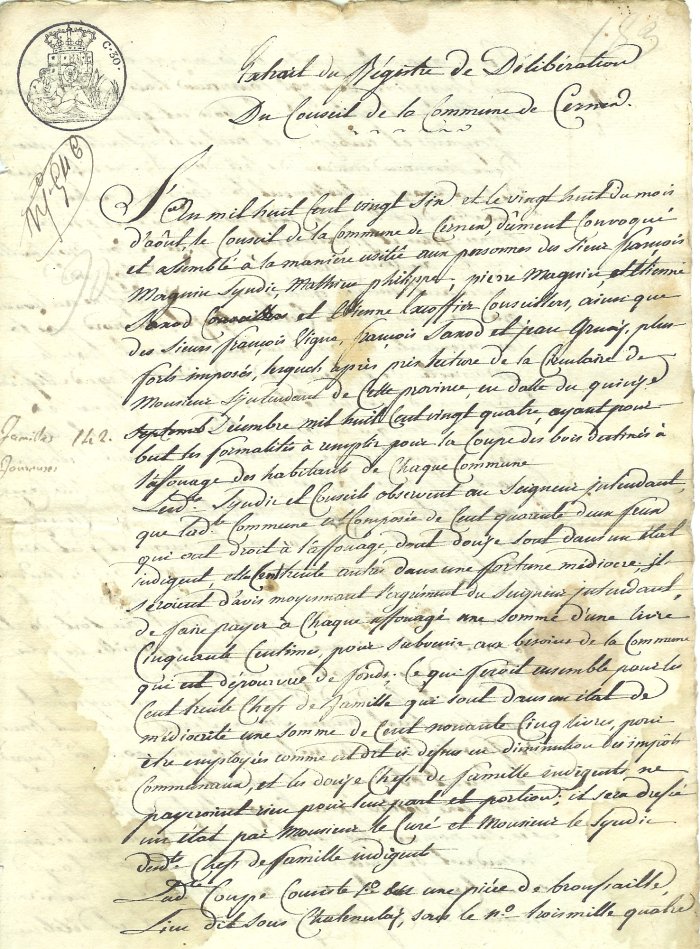 C. 30.
153
Extrait du Régistre de Délibération
Du Conseil de la Commune de Cernex.
L'an mil huit Cent vingt six et le vingt huit du mois
d'août, le Conseil de la Commune de Cernex, dûment Convoqué
et assemblé à la manière usitée aux personnes des sieur françois
Maquin Syndic Mathieu philippe, pierre Maquin, et Etienne
Saxod Conseillers et Etienne Conseillers, ainsi que
des Sieurs françois Vigne, françois Saxod et jean plus
forts imposés, lesquels après prise lecture de la Circulaire de
Monsieur L'jntendant de Cette province, en date du quinze
Septemb Décembre mil huit Cent vingt quatre, ayant pour
but les formalités à remplir pour la Coupe des bois destinés à
l'affouage des habitants de Chaque Commune
familles 142.
Lesd.ts Syndic et Conseils observent au Seigneur jntendant,
que lad.te Commune est Composée de Cent quarante deux feux
qui ont droit à l'affouage, dont douze sont dans un état
indigent, et Cent trente autres dans une fortune médiocre, il
seroient d'avis moyennant l'agrément du Seigneur jntendant,
de faire payer à Chaque affouagé une somme d'une livre
Cinquante Centimes pour subvenir aux besoins de la Commune
qui est dépourvue de fonds. Ce que feroit ensemble pour les
Cent trente Chefs de famille qui sont dans un état de
médiocrité une somme de Cent nonante Cinq livres, pour
être employées comme est dit ci dessus en diminution des impôts
Communaux, et les douze Chefs de famille indigents, ne
payeroient rien pour leur part et portion, il sera dressé
un état par Monsieur le Curé et Monsieur le Syndic
desd.ts Chefs de famille indigent
Lad.te Coupe Consiste 1.o une pièce de broussaille,
Lieu dit sous sous le n.o trois mille quatre